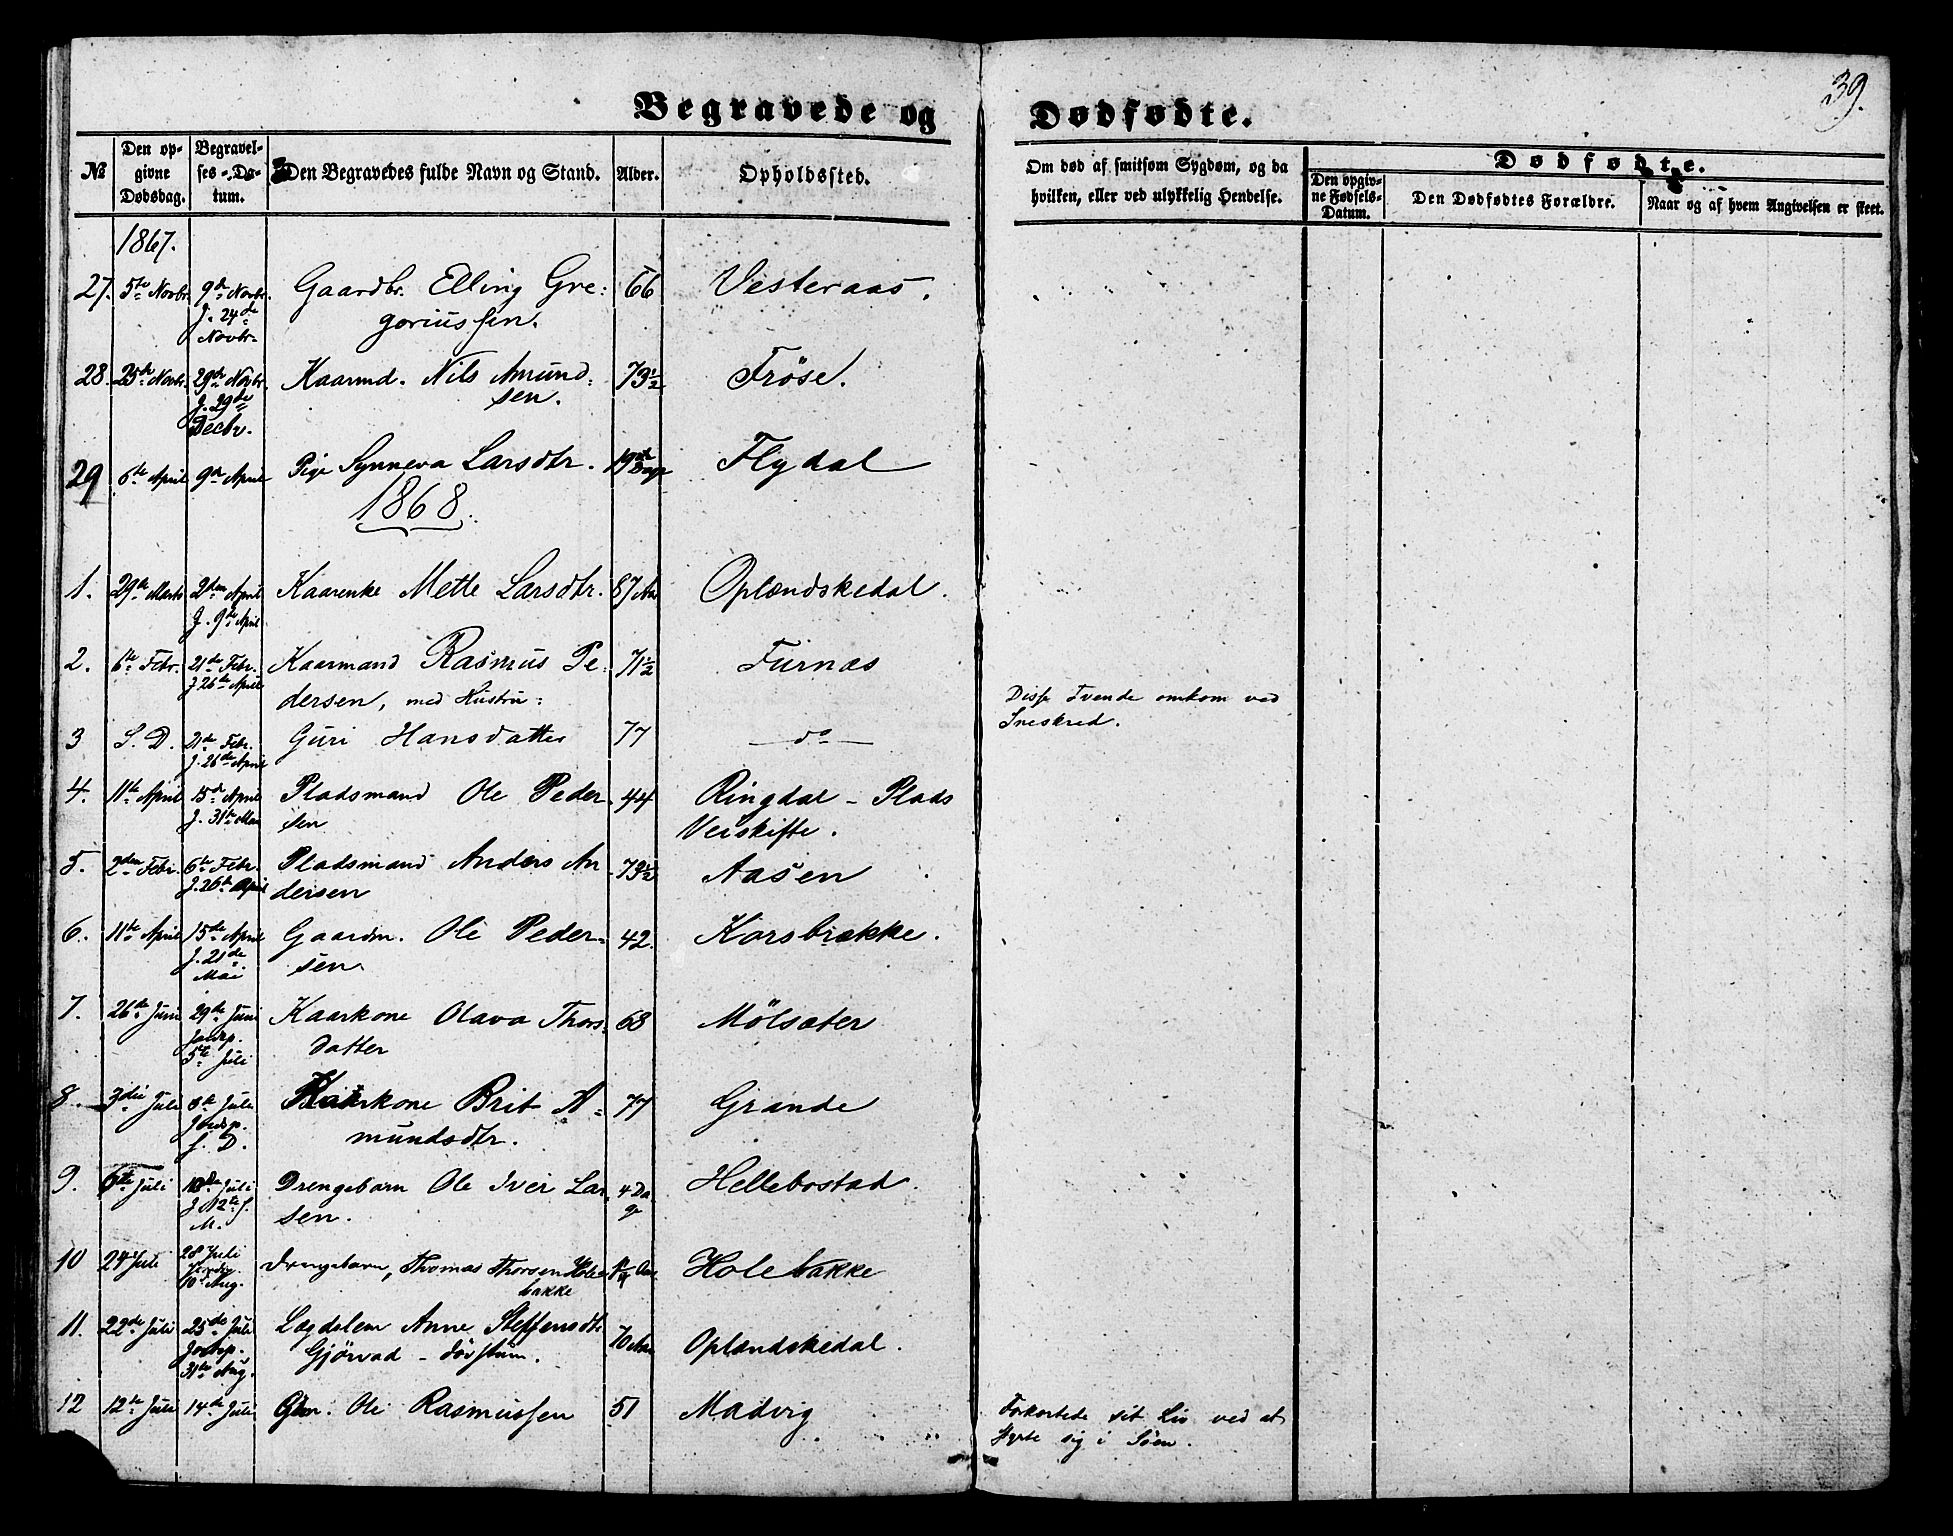 Begravede og Dødfødte.
39.
№ Den opgivne Dødsdag. Begravelses-Datum. Den Begravedes fulde Navn og Stand. Alder. Opholdssted. Om død af smitsom Sygdom, og da hvilken, eller ved ulykkelig Hendelse. Dødfødte. Den opgivne Fødsels-Datum. Den Dødfødtes Forældre. Naar og af hvem Angivelsen er skeet.
1867.
27. 5te Novbr. 9de Novbr. Gaardbr. Elling Gre- 66 Vesteraas.
J. 24de goriussen.
Novbr
28. 25de Novbr. 29de Novbr. Kaarmd. Nils Amund- 73½ Fröse.
J. 29de sen.
Decbr.
29 6te April 9de April Pige Synneva Larsdtr. 19 Dage Flydal
1868.
1. 29de Marts 2den April Kaarenke Mette Larsdtr. 87 Aar Oplændskedal.
J. 9de April
2. 6te Febr. 21de Febr. Kaarmand Rasmus Pe- 71½ Furnæs
J. 26de April dersen, med Hustru: Disse Tvende omkom ved
3 S. D. 21de Febr. Guri Hansdatter 77 — do — Sneskred.
J. 26de April
4. 11te April 15de April Pladsmand Ole Peder- 44 Ringdal - Plads
J. 31te Mai sen Veiskifte.
5. 2den Febr. 6te Febr. Pladsmand Anders An 79½ Aasen
J. 26de April dersen
6. 11te April 15de April Gaardm. Ole Peder- 42. Korsbrække.
J. 21de sen
Mai
7. 26de Juni 29de Juni Kaarkone Olava Thors- 68 Mölsæter
Jordp. datter
5te Juli
8. 3die Juli 8de Juli Kaarkone Brit A- 77 Grande
Jordp. mundsdtr.
s. D.
9. 6te Juli 10de Juli Drengebarn Ole Iver Lar 4 Da- Hellebostad.
J. 12te s. sen. ge
M.
10 24 Juli 28 Juli Drengebarn, Thomas Thorsen Hole- Holebakke
10de Aug. bakke
11. 22de Juli 25de Juli Lægdslem Anne Steffensdtr 70 Aar Oplændskedal.
Jordp. Gjörvad - dövstum.
31te Aug.
12 12te Juli 14de Juli Gbr. Ole Rasmussen 51 Madvig Forkortede sit Liv ved at
styrte sig i Söen.